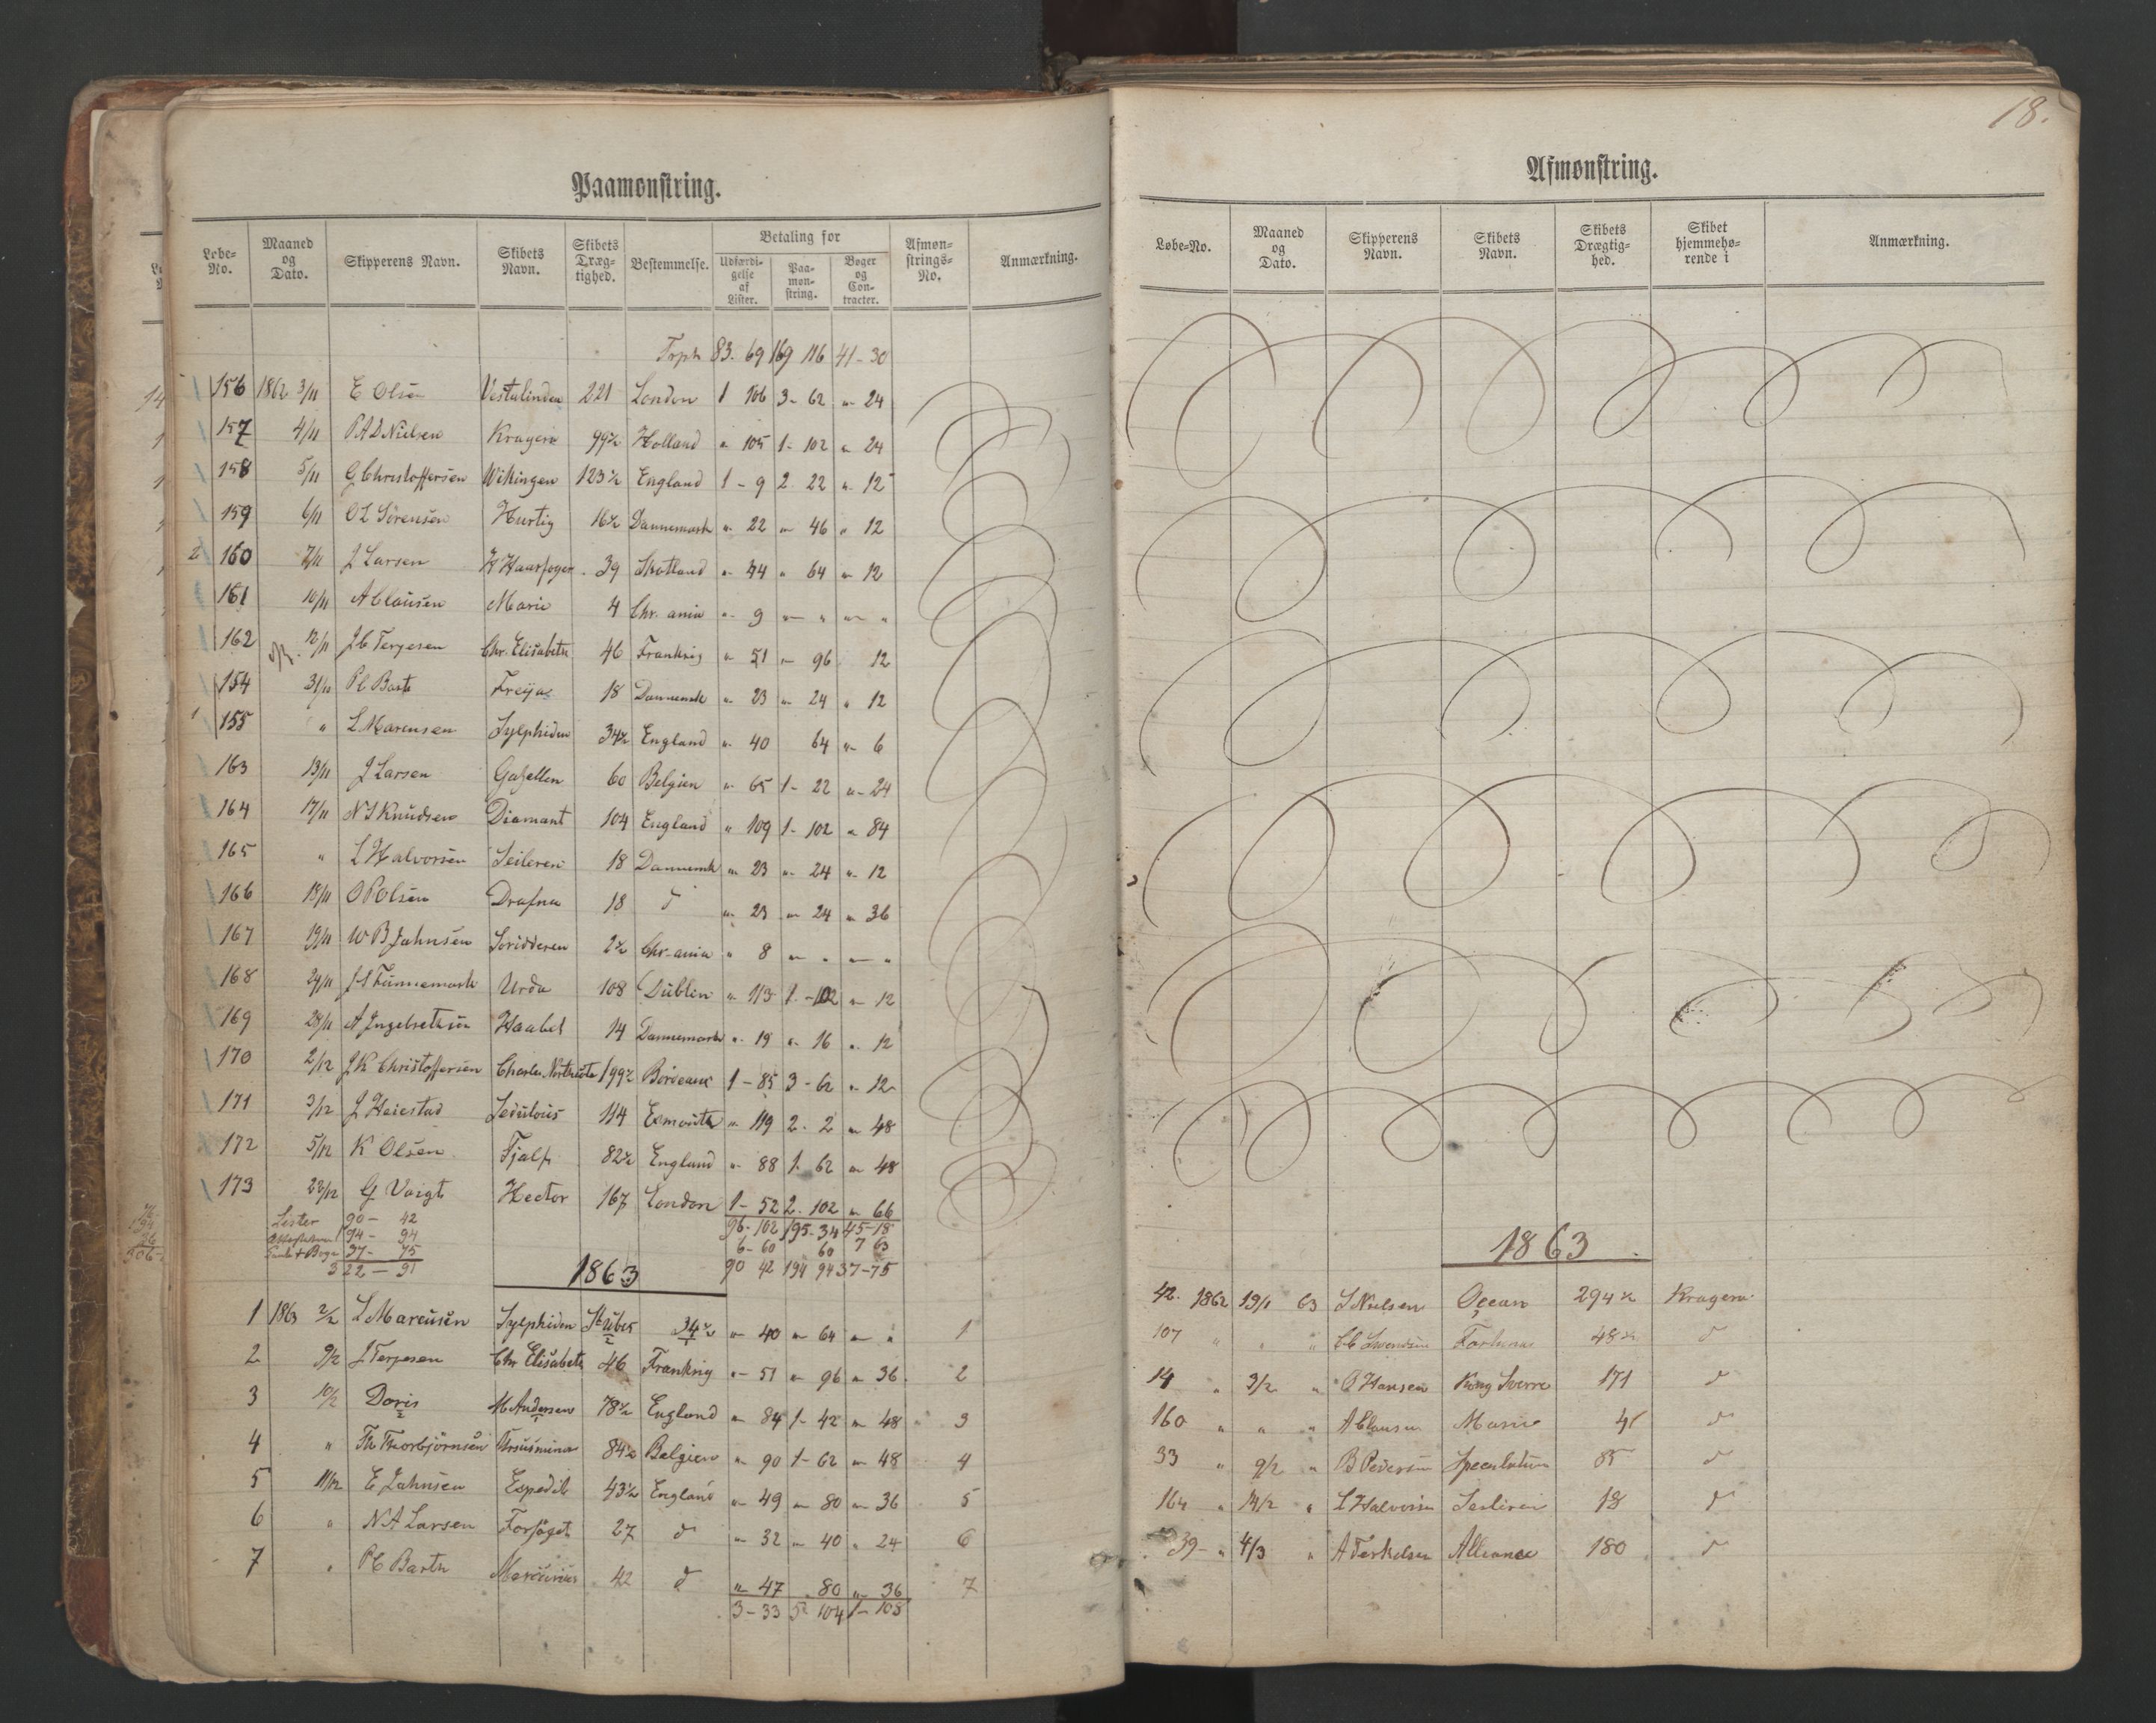 Paamønstring.
Løbe-No. Maaned og Dato. Skipperens Navn. Skibets Navn. Skibets Drægtighed. Bestemmelse. Betaling for Udfærdigelse af Lister. Paamønstring. Bøger og Contracter. Afmønstrings-No. Anmærkning.
Trpt 83. 69 169 116 41-30
156 1862 3/11 E Olsen Vestalinden 221 London 1 106 3- 62 " 24
157 4/11 P A D Nielsen Kragerø 99½ Holland " 105 1- 102 " 24
158 5/11 G Christoffersen Wikingen 123½ England 1 - 9 2. 22 " 12
159 6/11 O L Sørensen Hurtig 16½ Dannemark " 22 " 46 " 12
2 160 7/11 J Larsen H Haarfager 39 Skotland " 44 " 64 " 12
161 10/11 A Clausen Marie 4 Chr. ania " 9 " " " "
162 12/11 J C Terjesen Chr. Elisabeth 46 Frankrig " 51 " 96 12
154 31/10 P C Barth Freija 18 Dannemk " 23 " 24 " 12
155 " L Marcusen Sylphiden 34½ England " 40 64 " 6
163 13/11 J Larsen Gazellen 60 Belgien " 65 1- 22 " 24
164 17/11 N S Knudsen Diamant 104 England " 109 1- 102 " 84
165 " L Halvorsen Seileren 18 Dannemk " 23 " 24 " 12
166 18/11 O P Olsen Drafna 18 d " 23 " 24 " 36
167 19/11 W B Jahnsen 2½ Chr-ania " 8 " " " "
168 24/11 Urda 108 Dublin " 113 1 - 102 " 12
169 28/11 A Ingebretsen Haabet 14 Dannemark " 19 " 16 " 12
170 2/12 J K Christoffersen Charles 199½ Bordeaux 1 - 85 3 - 62 " 12
171 3/12 J Heiestad Sedulous 114 Exmouth " 119 2. 2 " 48
172 5/12 K Olsen Fjalp 82½ England " 88 1. 62 " 48
173 22/12 G Voigt Hector 167 London 1- 52 2. 102 " 66
Lister 90 - 42 96. 102 195. 34 45-18
194 - 94 6 - 60 60 7 63
37 - 75 90 42 194 94 37-75
322 - 91
1863
1 1863 2/2 L Marcusen Sylphiden 34½ " 40 " 64 " " 1
2 9/2 J Terjesen Chr Elisabeth 46 Frankrig " 51 " 96 " 36 2
3 10/2 Doris M Andersen 78½ England " 84 1- 42 " 48 3
4 " Th Thorbjörnsen Ursus minor 84½ Belgien " 90 1- 62 " 48 4
5 11/2 E Jahnsen Expedit 43½ England " 49 " 80 " 36 5
6 " N A Larsen Forsøget 27 d " 32 " 40 " 24 6
7 " P C Barth Mercurius 42 d " 47 " 80 " 36 7
3 - 33 5 104 1- 108
18.
Afmønstring.
Løbe-No. Maaned og Dato. Skipperens Navn. Skibets Navn. Skibets Drægtighed. Skibet hjemmehørende i Anmærkning.
1863
42. 1862 19/1 63 S Nielsen Ocean 294½ Kragerø
107 " " " Fortuna 48½ d
14 " 3/2 " O Hansen Kong Sverre 171 d
160 " " " A Clausen Marie 4 d
33 " 9/2 " B Pedersen Speculation 85 d
164 " 14/2 " L Halvorsen Seileren 18 d
39 " 4/3 " A Terkelsen Alliance 180 d